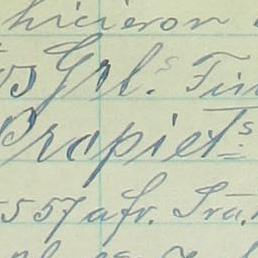 hicieron
os Grl.s Fin
Propiets
557 afr. Sra.